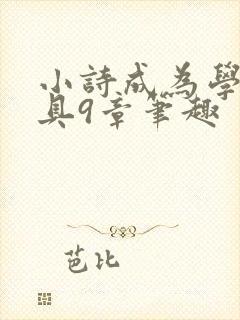 小詩成為學
具9章筆趣
芭比